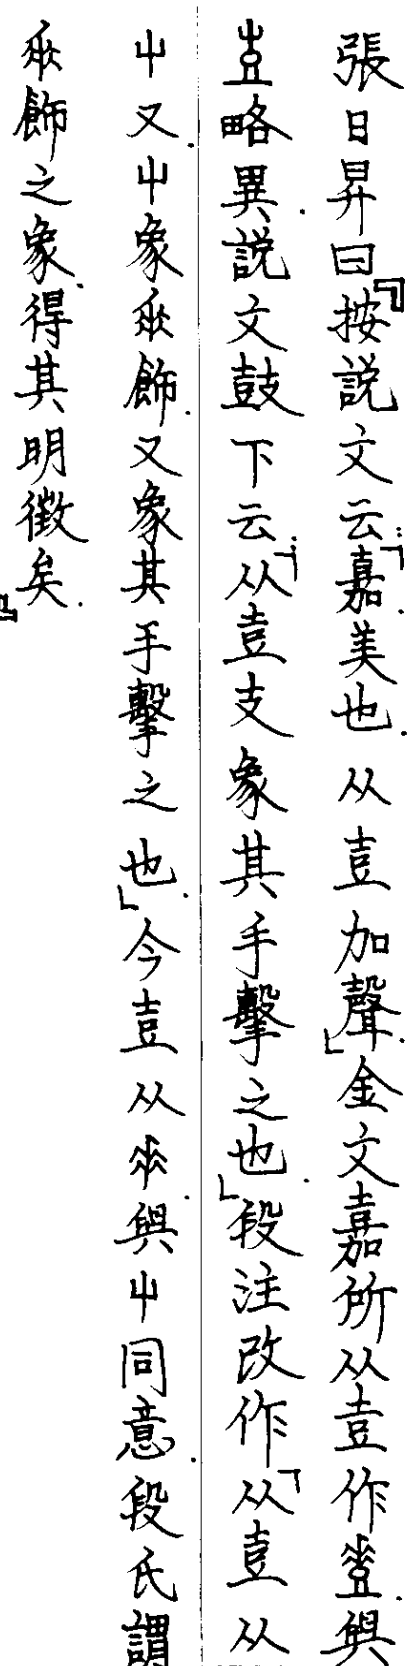 張日昇曰『按説文云:「嘉.美也.从壴加聲」.金文嘉所从壴作.與
略異.説文鼓下云:「从壴支象其手擊之也」.段注改作「从壴从
屮又.屮象𠂹飾.又象其手擊之也」.今壴从.與屮同意.段氏謂
𠂹飾之象.得其明徵矣.』